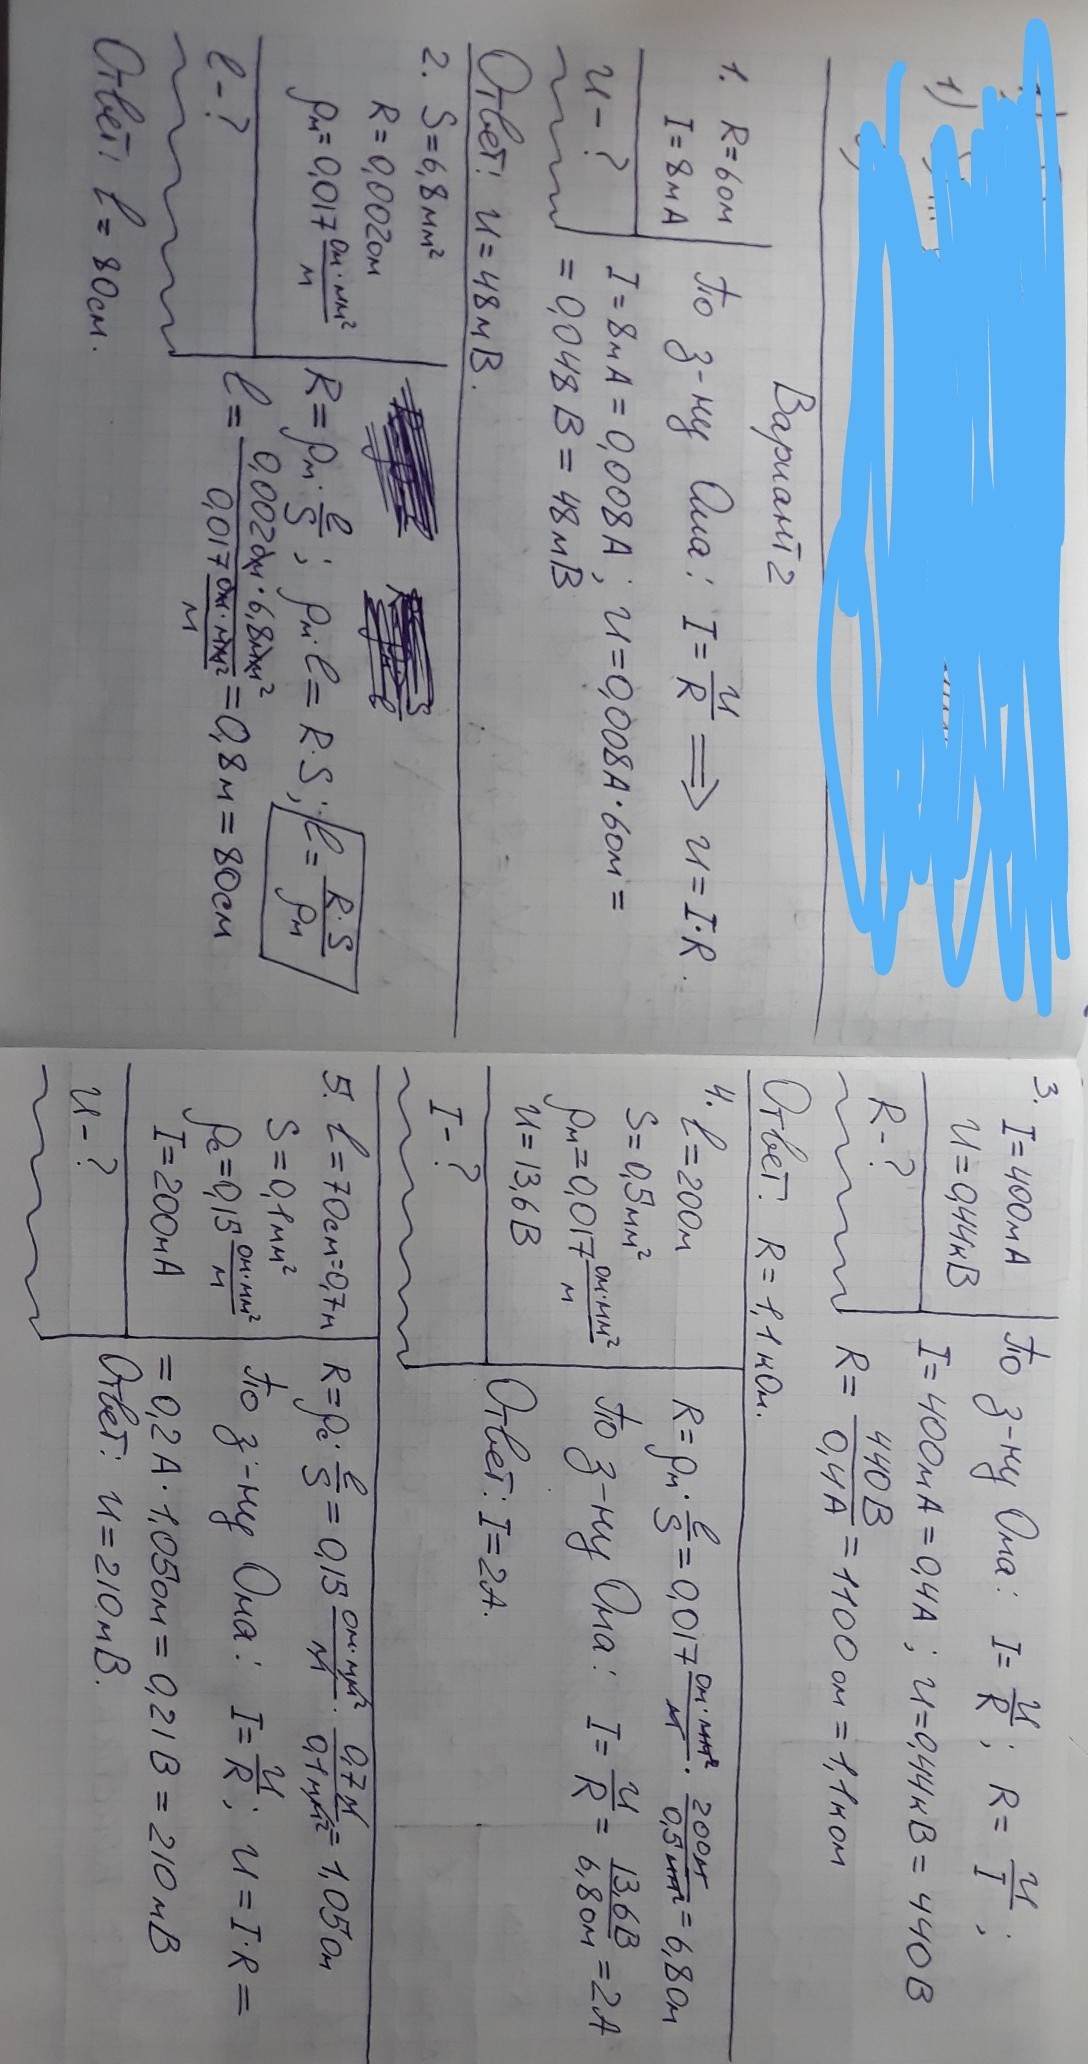 1)
Вариант 2
1. R=6Ом
I=8мА
U-?
По з-ну Ома: I=U/R ⟹ U=I·R.
I=8мА=0,008А; U=0,008А·6Ом=
=0,048В=48мВ
Ответ: U=48мВ.
2. S=6,8мм²
R=0,002Ом
ρм=0,017 Ом·мм²/м
l-?
R=ρм·l/S; ρм·l=R·S; l=R·S/ρм
l=0,002Ом·6,8мм²/0,017 Ом·мм²/м=0,8м=80см
Ответ: l=80см.
3. I=400мА
U=0,44кВ
R-?
По з-ну Ома: I=U/R; R=U/I;
I=400мА=0,4А; U=0,44кВ=440В
R=440В/0,4А=1100Ом=1,1кОм
Ответ: R=1,1кОм.
4. l=200м
S=0,5мм²
ρм=0,017 Ом·мм²/м
U=13,6В
I-?
R=ρм·l/S=0,017 Ом·мм²/м·200м/0,5мм²=6,8Ом
По з-ну Ома: I=U/R=13,6В/6,8Ом=2А
Ответ: I=2А.
5. l=70см=0,7м
S=0,1мм²
ρс=0,15 Ом·мм²/м
I=200мА
U-?
R=ρс·l/S=0,15 Ом·мм²/м·0,7м/0,1мм²=1,05Ом
По з-ну Ома: I=U/R; U=I·R=
=0,2А·1,05Ом=0,21В=210мВ
Ответ: U=210мВ.